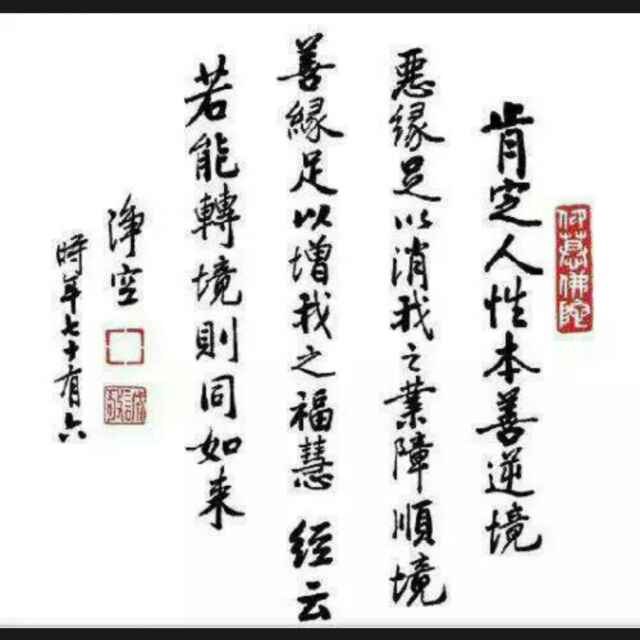 仰慕佛陀
肯定人性本善逆境
惡緣足以消我之業障順境
善緣足以增我之福慧 經云
若能轉境則同如来
淨空
時年七十有六